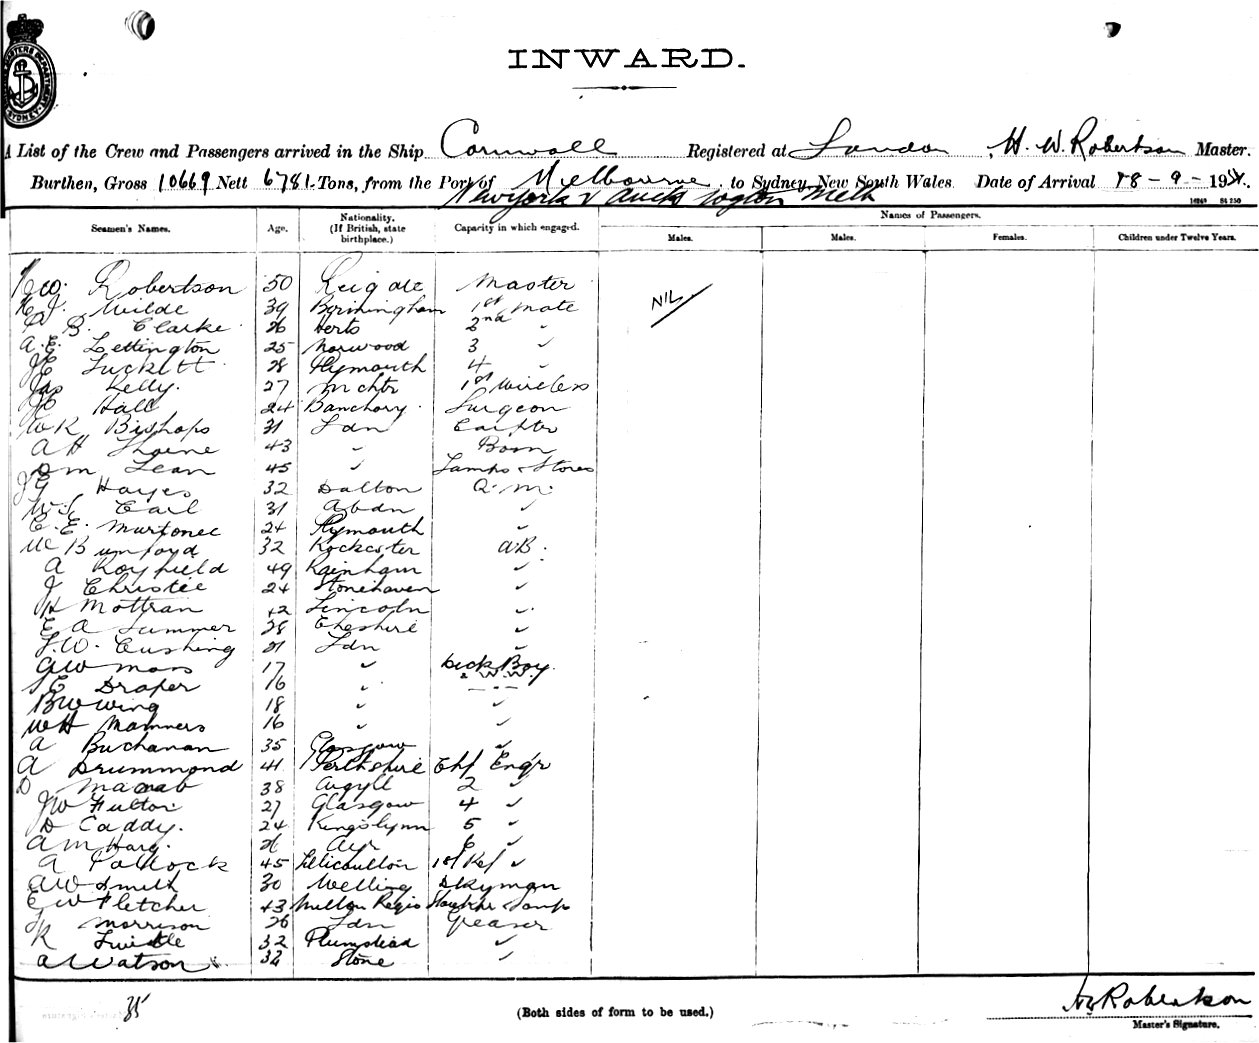 INWARD.
A List of the Crew and Passengers arrived in the Ship Cornwall Registered at London , H. W. Robertson Master.
Burthen, Gross 10669 Nett 6781 Tons, from the Port of Melbourne to Sydney, New South Wales Date of Arrival 18 - 9 - 19
New York v Melb
14240 84 250
Seamen's Names. Age. Nationality. (If British, state birthplace.) Capacity in which engaged. Names of Passengers.
Males. Males. Females. Children under Twelve Years.
Robertson 50 Reigate Master NIL
Wilde 39 Birmingham 1st Mate
B. Clarke 26 Herts 2nd "
A. E. Lettington 25 Norwood 3 "
Luckett 28 Plymouth 4 "
Jas Kelly. 27 Mchtr 1st Wireless
Hall 24 Banchory Surgeon
W R Bishops 31 Ldn Carpter
A H Thorne 43 " Bosn
D M Lean 45 " Lamps & Stores
J G Hayes 32 Dalton Q. M.
Earl 31 Abdn "
C. E. Murtonec 24 Plymouth "
32 Rochester AB.
A Royfield 49 Rainham "
J Christie 24 Stonehaven "
H Mottran 42 Lincoln "
E A Summer 28 Cheshire "
F. W. Cushing 21 Ldn "
A W Mars 17 " Deck Boy.
S E Draper 16 " & W. W. "
B W Wing 18 " "
W H Manners 16 " "
A Buchanan 35 Glasgow "
A Drummond 41 Perthshire Chf Engr
D Macnab 38 Argyll 2 "
J W Fulton 27 Glasgow 4 "
D Caddy. 24 Kingslynn 5 "
A M Harg. 26 Ayr 6 "
A Pollock 45 Tillicoulton 1st Ref "
A W Smith 30 Welling Dkyman
E W Fletcher 43 Milton Regis
Morrison 26 Ldn Greaser
R Twistle 32 Plumstead "
A Watson 32 Stone "
35
(Both sides of form to be used.)
H W Robertson
Master's Signature.